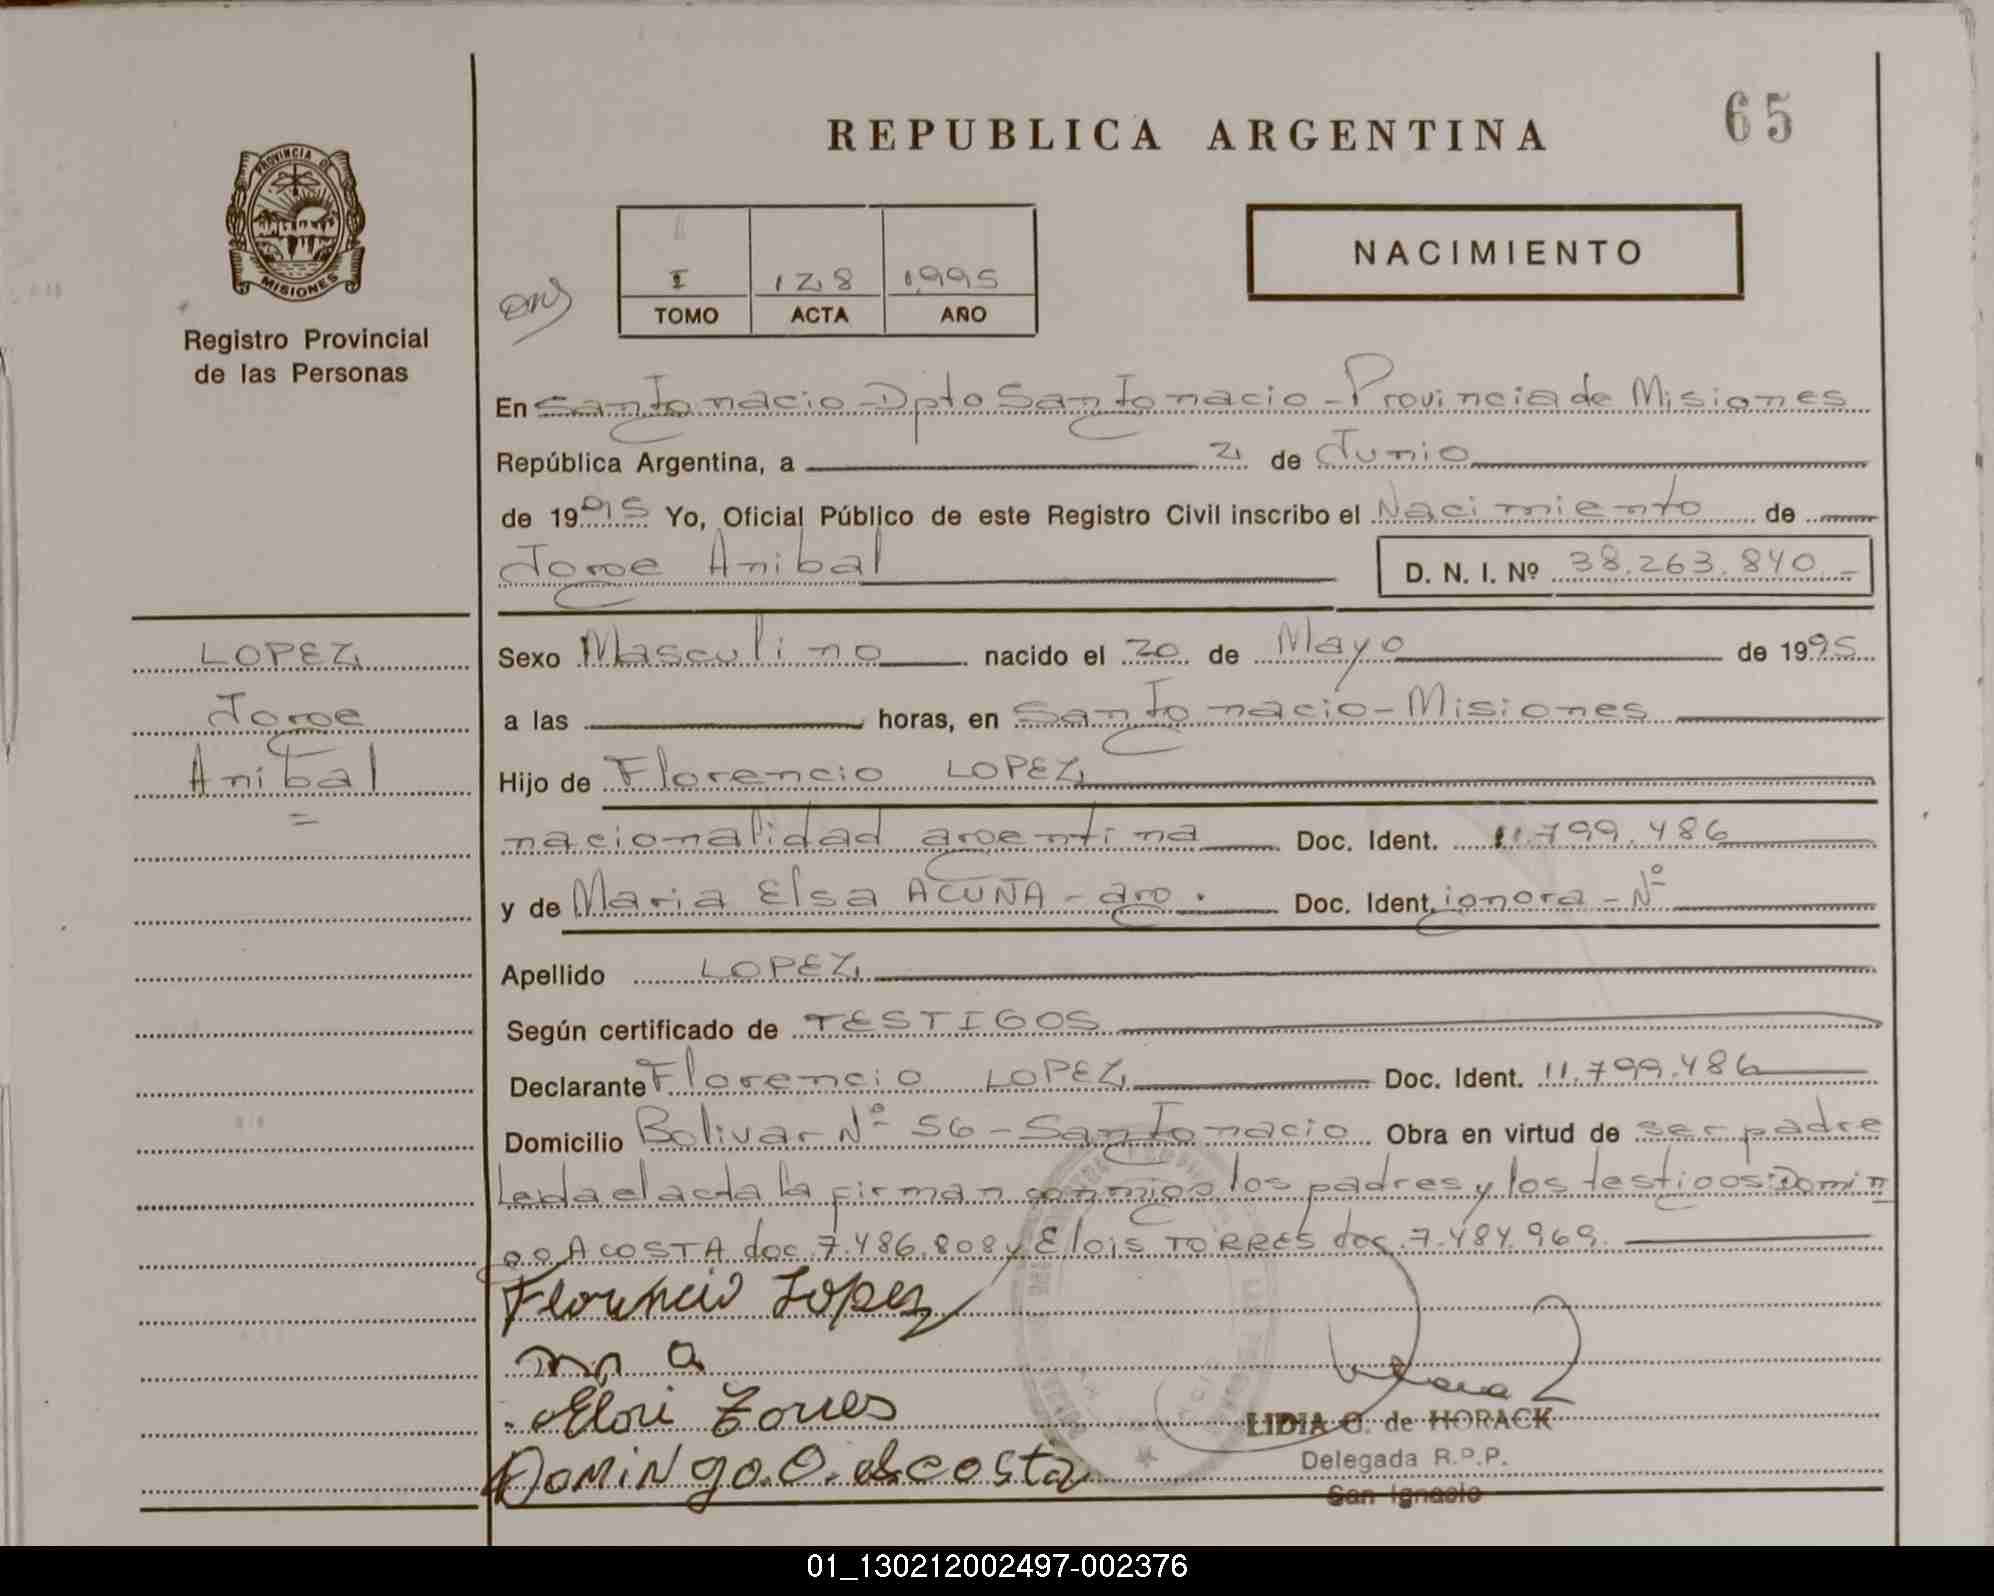 REPUBLICA ARGENTINA
65
PROVINCIA DE
MISIONES
Registro Provincial
de las Personas
I 128 1995
TOMO ACTA AÑO
NACIMIENTO
En San Ignacio - Dpto San Ignacio - Provincia de Misiones
República Argentina, a 2 de Junio
de 1995 Yo, Oficial Público de este Registro Civil inscribo el Nacimiento de
Jorge Anibal D. N. I. Nº 38.263.840.-
LOPEZ
Jorge
Anibal
=
Sexo Masculino nacido el 20 de Mayo de 1995
a las horas, en San Ignacio - Misiones
Hijo de Florencio LOPEZ
nacionalidad argentina Doc. Ident. 11.799.486
y de Maria Elsa ACUÑA - arg. Doc. Ident. ignora - Nº
Apellido LOPEZ
Según certificado de TESTIGOS
Declarante Florencio LOPEZ Doc. Ident. 11.799.486
Domicilio Bolivar Nº 56 - San Ignacio Obra en virtud de ser padre
Leida el acta la firman conmigo los padres y los testigos: Domin
go ACOSTA doc. 7.486.808 y Elois TORRES doc. 7.484.969.
Florencio Lopez
Torres
Domingo O. Acosta
LIDIA G. de HORACK
Delegada R.P.P.
San Ignacio
01_130212002497-002376